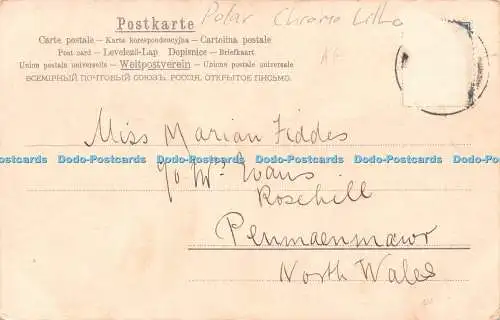 Postkarte Polar Chromo Litho
Carte postale – Karta korespondencyjna – Cartolina postale
Post card – Levelező-Lap Dopisnice – Briefkaart
Unione postale universelle – Weltpostverein – Unione postale universale
ВСЕМІРНЫЙ ПОЧТОВЫЙ СОЮЗЪ. РОССІЯ. ОТКРЫТОЕ ПИСЬМО.
Miss Marian Fiddes
Dodo-Postcards Dodo-Postcards Dodo-Postcards Dodo-Postcards Dodo-Postcards Dodo-Postcards
c/o Mrs Evans
Rosehill
Penmaenmawr
North Wales